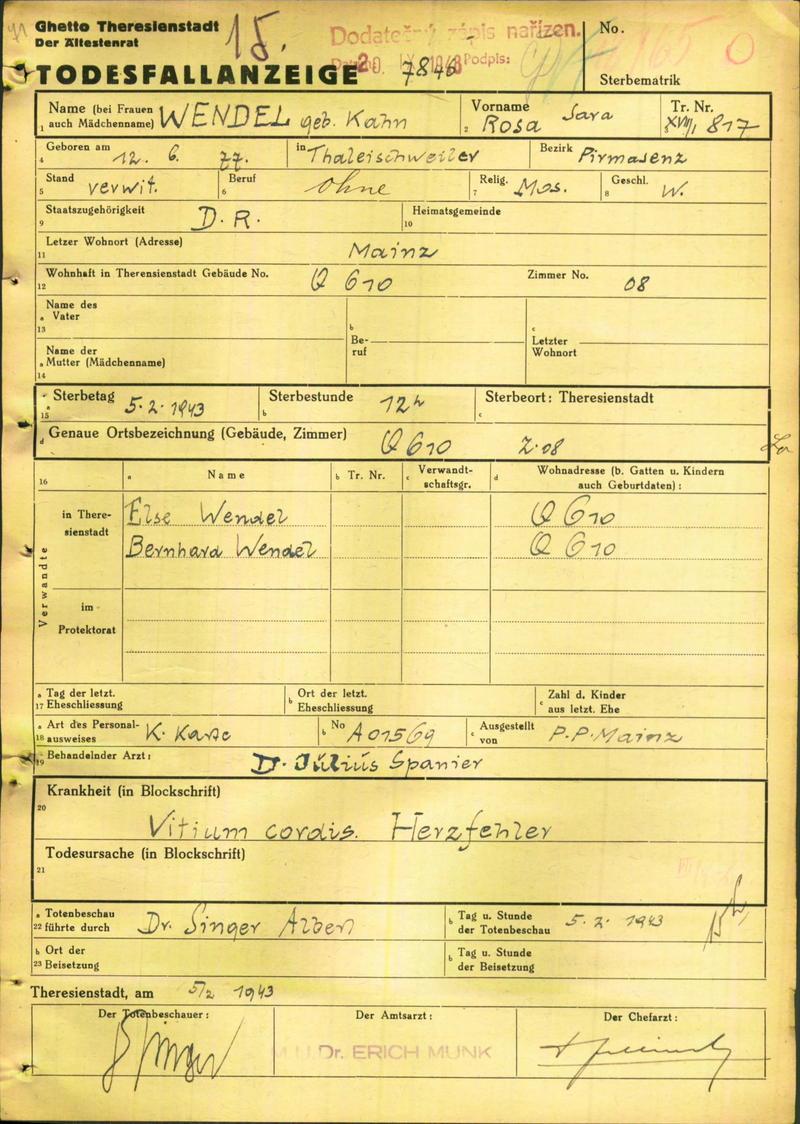 Ghetto Theresienstadt
Der Ältestenrat
15.
Dodatečný zápis nařízen.
Podpis:
7846
No.
TODESFALLANZEIGE
Sterbematrik
Name (bei Frauen auch Mädchenname) WENDEL geb. Kahn
1
Vorname Rosa Sara
2
Tr. Nr. XVII/1 817
Geboren am 12. 6. 77. in Thaleischweiler Bezirk Pirmasenz
4
Stand verwit. Beruf ohne Relig. Mos. Geschl. W.
5 6 7 8
Staatszugehörigkeit D. R. Heimatsgemeinde
9 10
Letzer Wohnort (Adresse) Mainz
11
Wohnhaft in Therensienstadt Gebäude No. Q 610 Zimmer No. 08
12
Name des
a Vater
13
b
Be-
ruf
c
Letzter
Wohnort
Name der
a Mutter (Mädchenname)
14
Sterbetag 5. 2. 1943 Sterbestunde 12h Sterbeort: Theresienstadt
a 15 b c
d Genaue Ortsbezeichnung (Gebäude, Zimmer) Q 610 Z. 08
16 a Name b Tr. Nr. c Verwandt-schaftsgr. d Wohnadresse (b. Gatten u. Kindern auch Geburtdaten):
Verwandte
in There-
sienstadt
Else Wendel Q 610
Bernhard Wendel Q 610
im
Protektorat
a Tag der letzt.
17 Eheschliessung
b Ort der letzt.
Eheschliessung
c Zahl d. Kinder
aus letzt. Ehe
a Art des Personal-
18 ausweises K. Karte b No A 01569 c Ausgestellt von P. P. Mainz
19 Behandelnder Arzt: Dr. Julius Spanier
Krankheit (in Blockschrift)
20
Vitium cordis. Herzfehler
Todesursache (in Blockschrift)
21
a Totenbeschau
22 führte durch Dr. Singer Alben b Tag u. Stunde der Totenbeschau 5. 2. 1943
b Ort der
23 Beisetzung
b Tag u. Stunde
der Beisetzung
Theresienstadt, am 5/2 1943
Der Totenbeschauer: Der Amtsarzt: Der Chefarzt:
Singer
Dr. ERICH MUNK